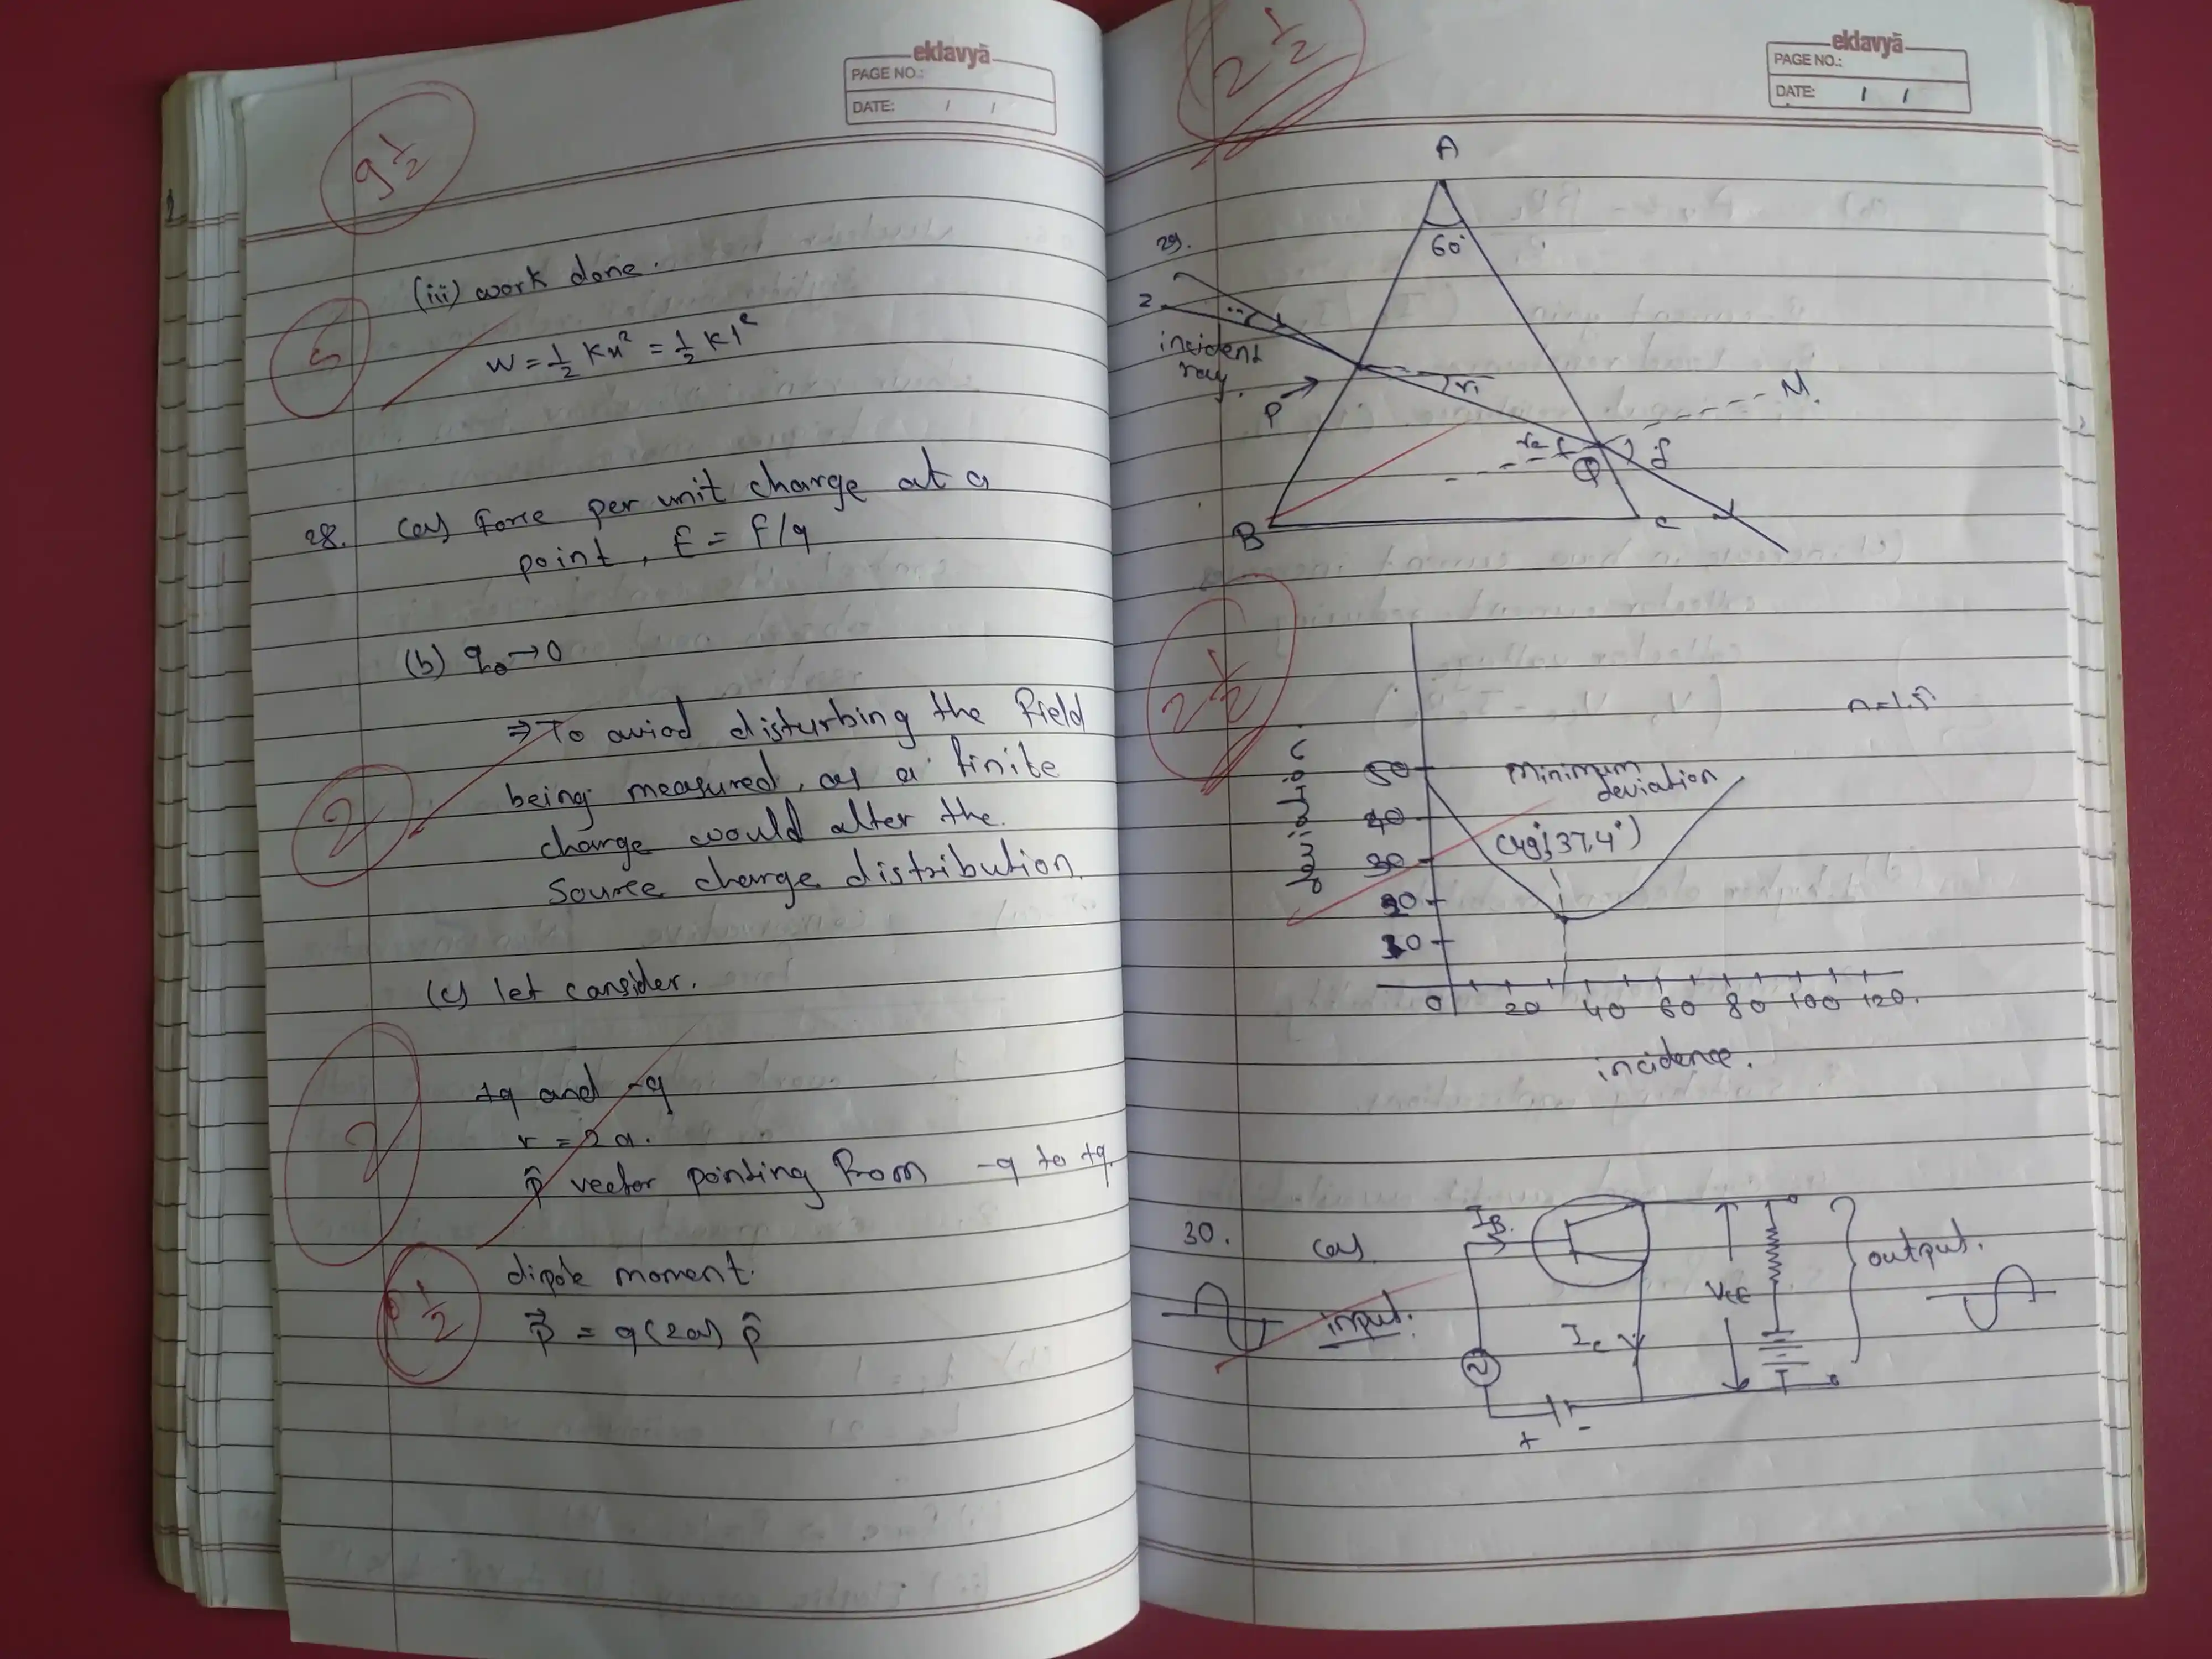 eklavyā
PAGE NO.:
DATE: / /
9 1/2
(iii) work done.
5
W = 1/2 Kx² = 1/2 Kl²
28. (a) Force per unit charge at a
point, E = F/q
(b) q₀→0
⇒ To aviod disturbing the field
being measured, as a finite
2
charge would alter the
Source charge distribution.
(c) let consider.
+q and -q
r = 2a.
2
p̂ vector pointing from -q to +q.
dipole moment.
1/2
p⃗ = q(2a) p̂
2 1/2
eklavyā
PAGE NO.:
DATE: / /
A
29.
60°
2
incident
ray.
P
r₁
M.
r₂
Q
B
C
2 1/2
n=1.5
50
Minimum
deviation
40
(49°, 37.4°)
30
20
10
0 20 40 60 80 100 120.
incidence.
30. (a)
I_B.
V_CE
output.
input.
I_C
+ -